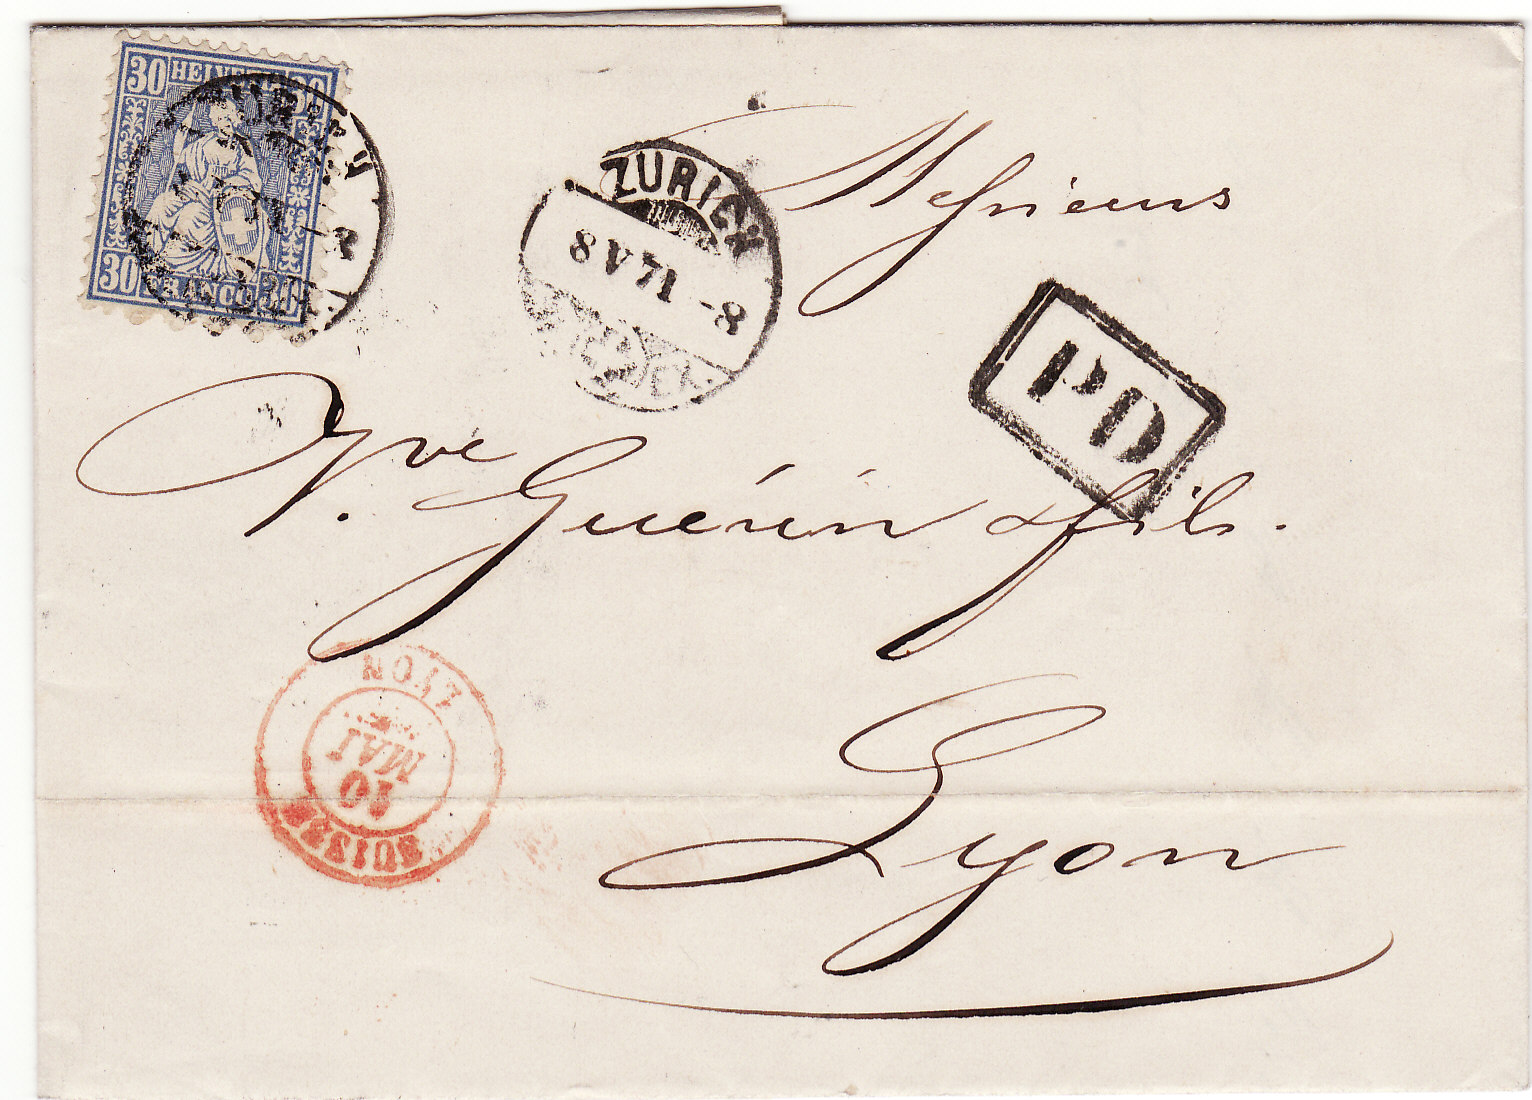 30 HELVETIA 30
30 FRANCO 30
ZÜRICH
8 V 71 - 8
Messieurs
PD
Vve. Guérin & fils.
LYON
10
MAI
SUISSE
Lyon